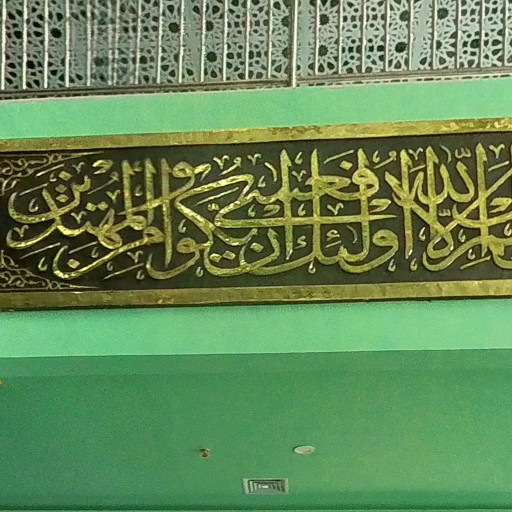 إِلَّا اللَّهَ فَعَسَىٰ أُولَٰئِكَ أَن يَكُونُوا مِنَ الْمُهْتَدِينَ